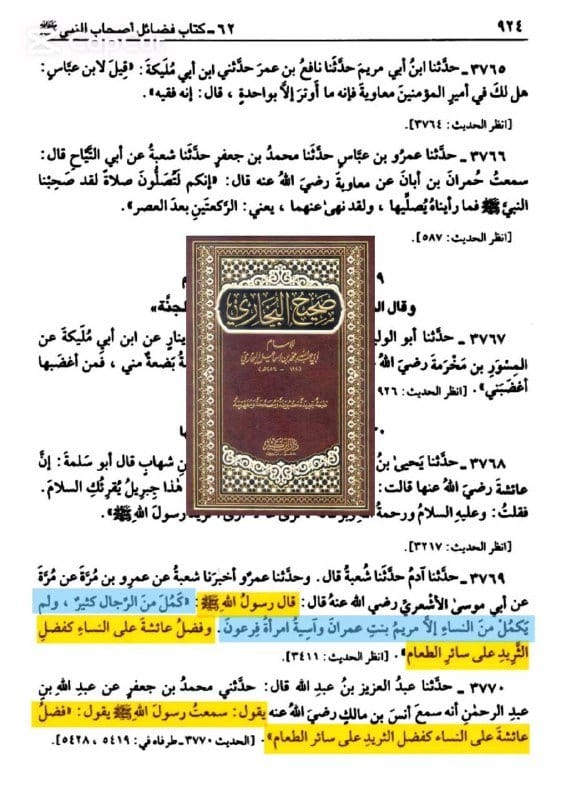 ٦٢ـ كتاب فضائل أصحاب النبي ﷺ
٩٢٤
CapCut
٣٧٦٥ ـ حدَّثنا ابنُ أبي مريمَ حدَّثَنا نافعُ بن عمرَ حدَّثني ابن أبي مُليكة: «قِيلَ لابن عبّاسٍ:
هل لكَ في أميرِ المؤمنينَ معاويةَ فإنه ما أَوترَ إلاَّ بواحدةٍ ، قال: إنه فقيه».
[انظر الحديث: ٣٧٦٤].
٣٧٦٦ ـ حدَّثنا عمرُو بن عبَّاسٍ حدَّثَنا محمدُ بن جعفرٍ حدَّثَنا شعبةُ عن أبي التَّيَّاحِ قال:
سمعتُ حُمرانَ بن أبانَ عن معاويةَ رضيَ اللهُ عنه قال: «إنكم لَتُصلُّونَ صلاةً لقد صَحِبْنا
النبيَّ ﷺ فما رأيناهُ يُصلِّيها ، ولقد نهىٰ عنهما ، يعني: الرَّكعتَينِ بعدَ العصر».
[انظر الحديث: ٥٨٧].
وقال
الجنَّة»
٣٧٦٧ ـ حدَّثنا أبو الوليد
دينار عن ابن أبي مُليكةَ عن
المِسْوَرِ بن مَخْرَمةَ رضيَ الله
بَضعةٌ مني ، فمن أغضَبها
أغضَبَني».
[انظر الحديث: ٩٢٦
صحيح البخاري
للإمام
أبي عبد الله محمد بن إسماعيل البخاري
(١٩٤ - ٢٥٦هـ)
دار ابن كثير
٣٧٦٨ ـ حدَّثنا يحيىٰ بنُ
شهابٍ قال أبو سلمةَ: إنَّ
عائشةَ رضيَ اللهُ عنها قالت:
هٰذا جِبريلُ يُقرئُكِ السلامَ.
فقلتُ: وعليهِ السلامُ ورحمةُ
رسولَ اللهِ ﷺ».
[انظر الحديث: ٣٢١٧].
٣٧٦٩ ـ حدَّثنا آدمُ حدَّثَنا شُعبةُ قال. وحدَّثنا عمرٌو أخبرَنا شعبةُ عن عمرِو بن مُرَّةَ عن مُرَّةَ
عن أبي موسىٰ الأشعريِّ رضي الله عنهُ قال: قال رسولُ اللهِ ﷺ: «كَمُلَ منَ الرِّجالِ كثيرٌ ، ولم
يَكمُلْ منَ النساءِ إلاَّ مريمُ بنتِ عمرانَ وآسِيةُ امرأةُ فِرعونَ. وفضلُ عائشةَ على النساءِ كفضلِ
الثَّريدِ على سائرِ الطعام».
[انظر الحديث: ٣٤١١].
٣٧٧٠ ـ حدَّثنا عبدُ العزيز بنُ عبدِ الله قال: حدَّثني محمدُ بن جعفرٍ عن عبدِ اللهِ بنِ
عبدِ الرحمٰنِ أنه سمعَ أنسَ بن مالكٍ رضيَ اللهُ عنه يقول: سمعتُ رسولَ اللهِ ﷺ يقول: «فضلُ
عائشةَ على النساء كفضل الثريدِ على سائر الطعام».
[الحديث ٣٧٧٠ ـ طرفاه في: ٥٤١٩ ، ٥٤٢٨].